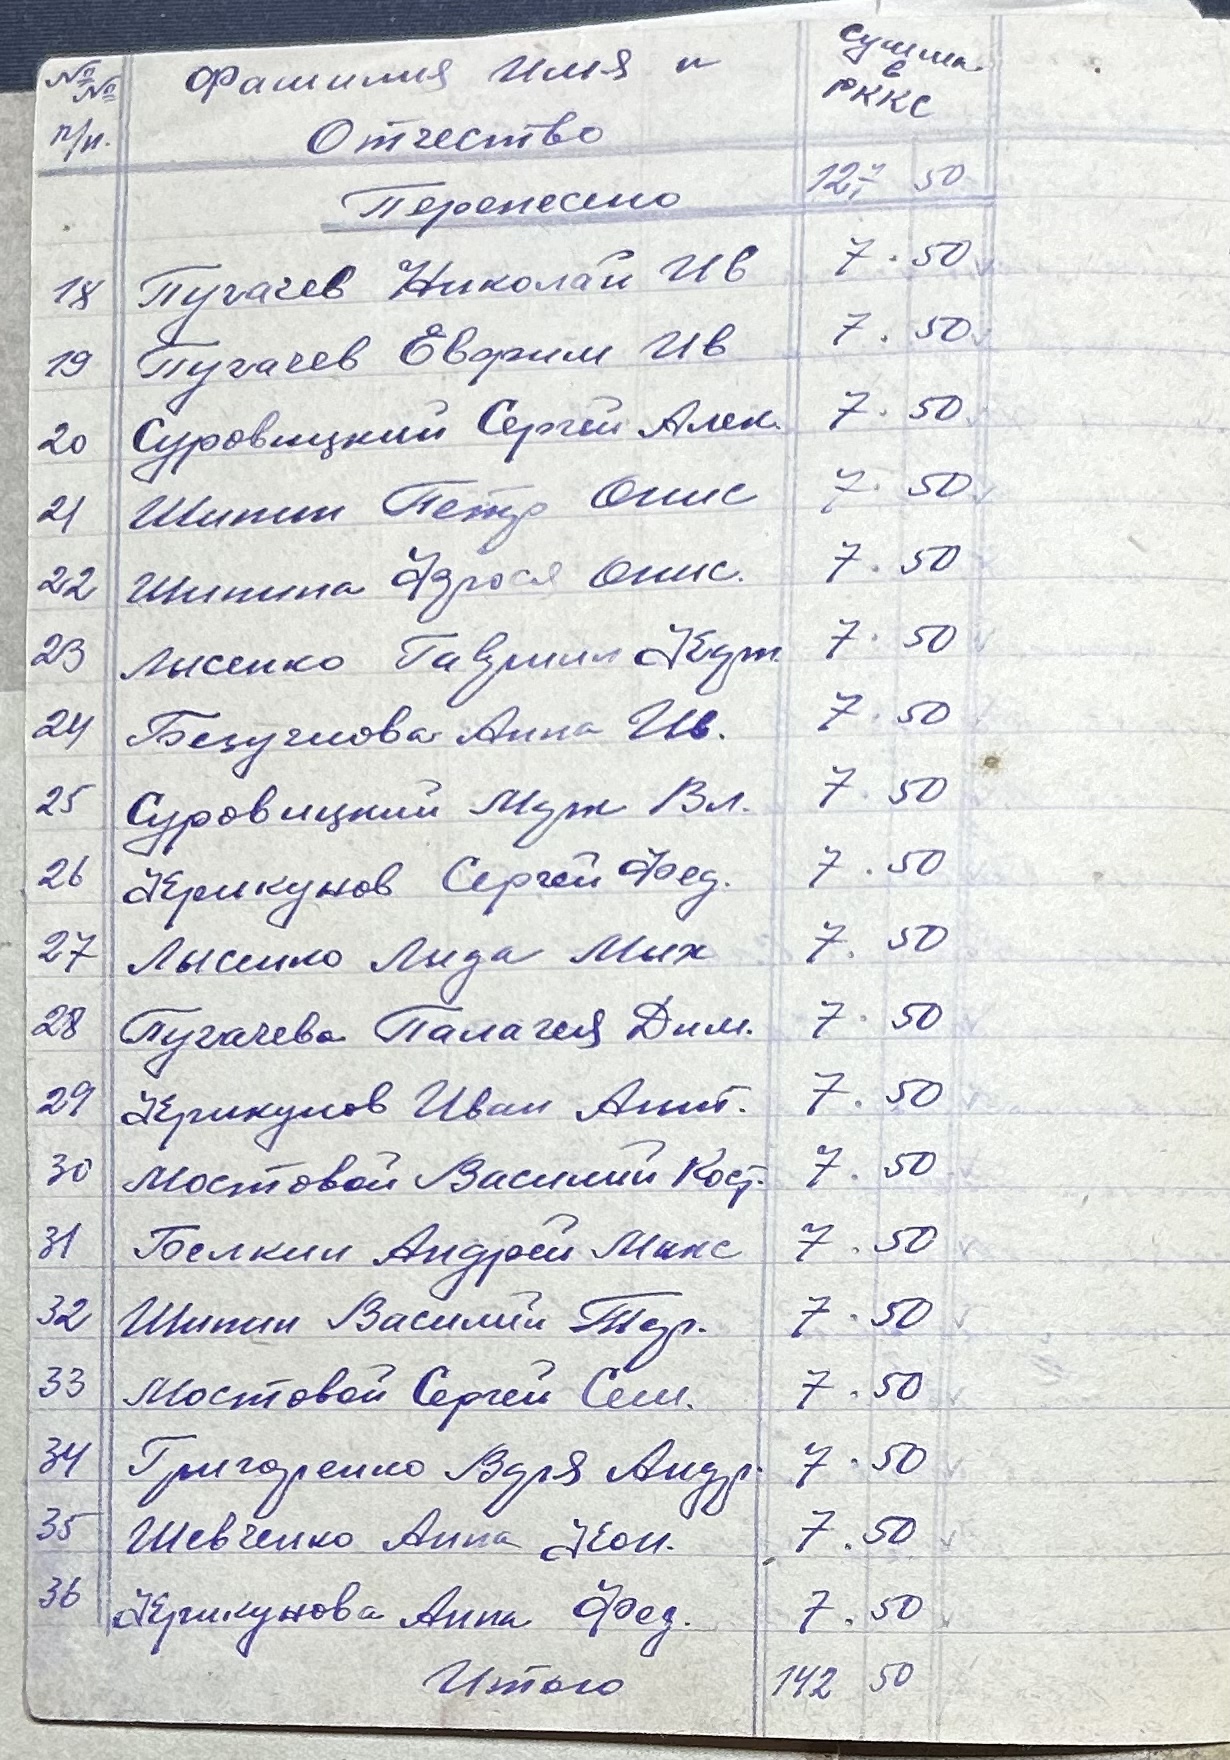 №№ Фамилия Имя и Сумма
п/п. Отчество в РККС
Перенесено 127 50
18 Пугачев Николай Ив 7.50
19 Пугачев Ефрим Ив 7.50
20 Суровицкий Сергей Алек. 7.50
21 Шипин Петр Онис 7.50
22 Шипина Фрося Онис. 7.50
23 Лысенко Гаврил Кузм. 7.50
24 Анна Ив. 7.50
25 Суровицкий Вл. 7.50
26 Крикунов Сергей Фед. 7.50
27 Лысенко Лида Мих 7.50
28 Пугачева Палагея Дим. 7.50
29 Крикунов Иван Ант. 7.50
30 Мостовой Василий Кост. 7.50
31 Белкин Андрей Макс 7.50
32 Шипин Василий 7.50
33 Мостовой Сергей Сем. 7.50
34 Григоренко Андр. 7.50
35 Шевченко Анна Кон. 7.50
36 Крикунова Анна Фед. 7.50
Итого 142 50